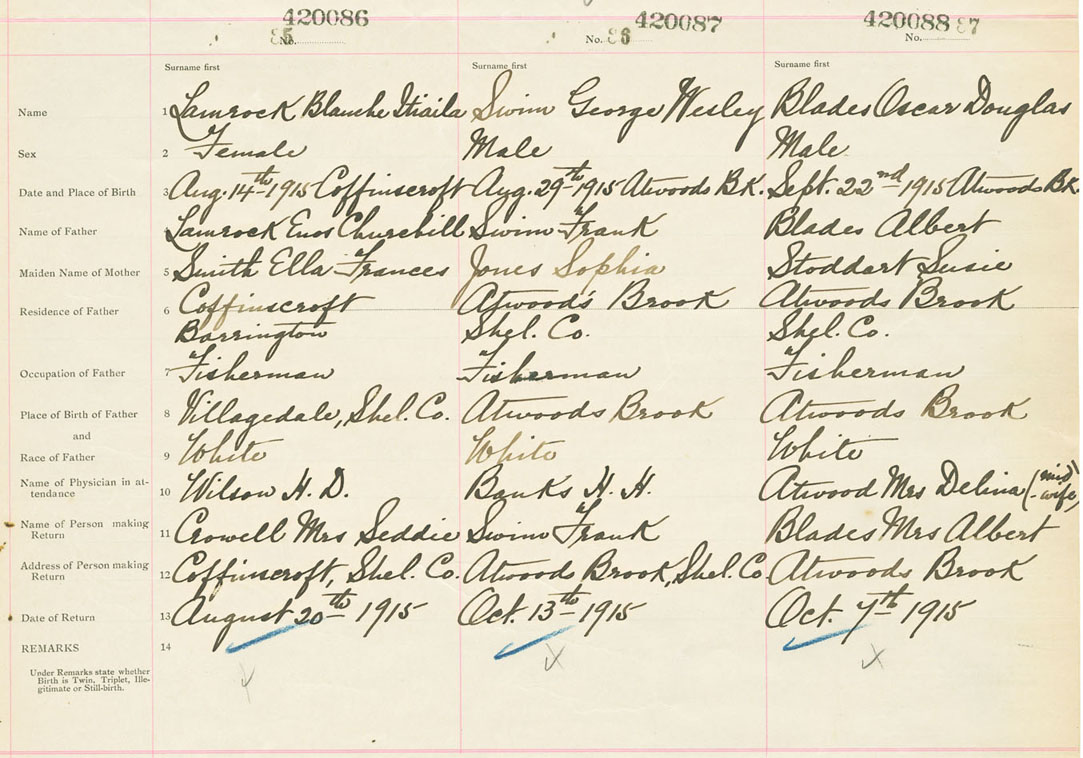 420086 420087 420088
No. 85 No. 86 No. 87
Surname first Surname first Surname first
Name 1 Lamrock Blanche Swim George Wesley Blades Oscar Douglas
Sex 2 Female Male Male
Date and Place of Birth 3 Aug. 14th 1915 Coffinscroft Aug. 29th 1915 Atwoods Bk. Sept. 22nd 1915 Atwoods Bk.
Name of Father 4 Lamrock Enos Churchill Swim Frank Blades Albert
Maiden Name of Mother 5 Smith Ella Frances Jones Sophia Stoddart Susie
Residence of Father 6 Coffinscroft Atwood's Brook Atwoods Brook
Barrington Shel. Co. Shel. Co.
Occupation of Father 7 Fisherman Fisherman Fisherman
Place of Birth of Father 8 Villagedale, Shel. Co. Atwoods Brook Atwoods Brook
and
Race of Father 9 White White White
Name of Physician in at-
tendance 10 Wilson H. D. Banks H. H. Atwood Mrs Delina (mid-wife)
Name of Person making
Return 11 Crowell Mrs Seddie Swim Frank Blades Mrs Albert
Address of Person making
Return 12 Coffinscroft, Shel. Co. Atwoods Brook, Shel. Co. Atwoods Brook
Date of Return 13 August 20th 1915 Oct. 13th 1915 Oct. 7th 1915
REMARKS 14
Under Remarks state whether
Birth is Twin, Triplet, Ille-
gitimate or Still-birth.